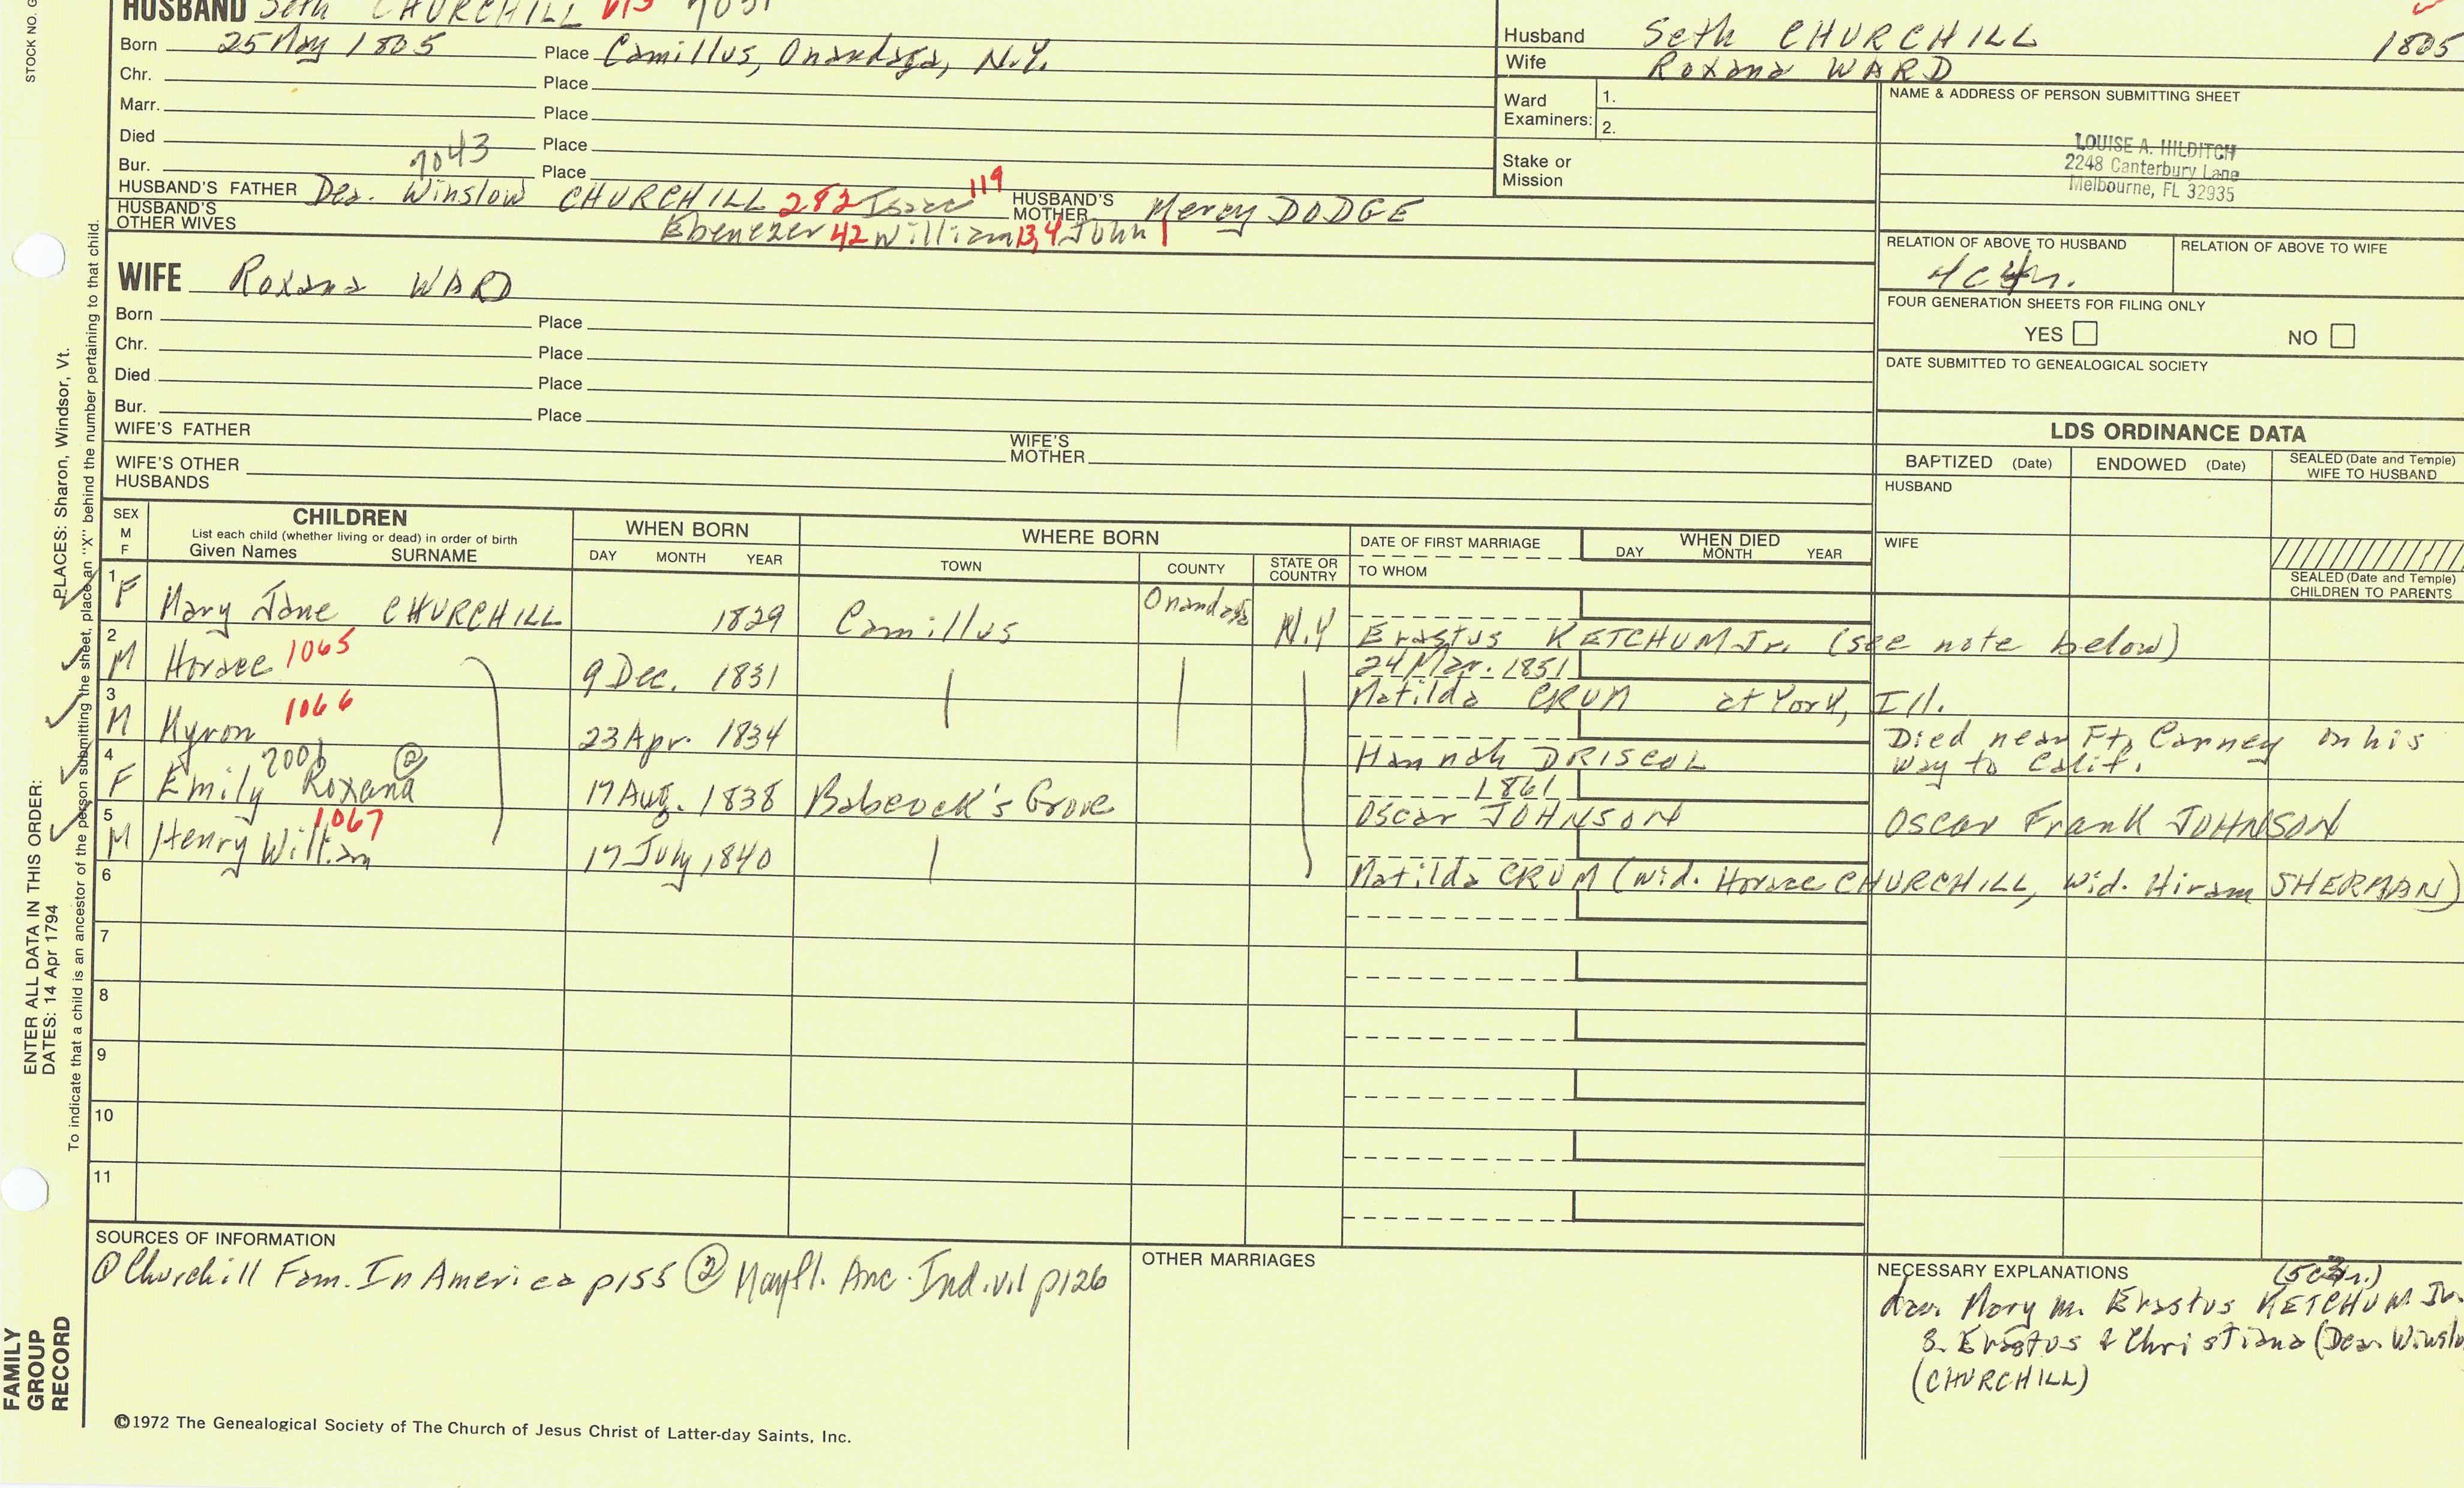 STOCK NO. G
HUSBAND Seth CHURCHILL 613 7051
Born 25 May 1805 Place Camillus, Onandaga, N.Y.
Chr. Place
Marr. Place
Died Place
7043
Bur. Place
HUSBAND'S FATHER Dea. Winslow CHURCHILL 282 Isaac 119 HUSBAND'S MOTHER Mercy DODGE
HUSBAND'S OTHER WIVES Ebenezer 42 William 13,4 John 1
Husband Seth CHURCHILL 1805
Wife Roxana WARD
Ward Examiners: 1.
2.
Stake or Mission
NAME & ADDRESS OF PERSON SUBMITTING SHEET
LOUISE A. HILDITCH
2248 Canterbury Lane
Melbourne, FL 32935
RELATION OF ABOVE TO HUSBAND RELATION OF ABOVE TO WIFE
FOUR GENERATION SHEETS FOR FILING ONLY
YES NO
DATE SUBMITTED TO GENEALOGICAL SOCIETY
WIFE Roxana WARD
Born Place
Chr. Place
Died Place
Bur. Place
WIFE'S FATHER WIFE'S MOTHER
WIFE'S OTHER HUSBANDS
LDS ORDINANCE DATA
BAPTIZED (Date) ENDOWED (Date) SEALED (Date and Temple) WIFE TO HUSBAND
HUSBAND
WIFE
SEALED (Date and Temple) CHILDREN TO PARENTS
SEX M F
CHILDREN
List each child (whether living or dead) in order of birth
Given Names SURNAME
WHEN BORN
DAY MONTH YEAR
WHERE BORN
TOWN COUNTY STATE OR COUNTRY
DATE OF FIRST MARRIAGE
TO WHOM
WHEN DIED
DAY MONTH YEAR
1 F Mary Jane CHURCHILL 1829 Camillus Onandaga N.Y Erastus KETCHUM Jr. (see note below)
2 M Horace 1065 9 Dec. 1831 24 Mar. 1851
Matilda CRUM at York, Ill.
3 M Myron 1066 23 Apr. 1834 Hannah DRISCOL Died near Ft. Carney on his way to Calif.
4 F Emily Roxana 7006 @ 17 Aug. 1838 Babcock's Grove 1861
Oscar JOHNSON Oscar Frank JOHNSON
5 M Henry Wiltan 1067 17 July 1840 Matilda CRUM (wid. Horace CHURCHILL, wid. Hiram SHERMAN)
6
7
8
9
10
11
SOURCES OF INFORMATION
① Churchill Fam. In America p155 ② Mayfl. Anc. Ind. vil p126
OTHER MARRIAGES
NECESSARY EXPLANATIONS
dau. Mary m. Erastus KETCHUM Jr.
s. Erastus & Christiana (Dea. Winslo
(CHURCHILL)
©1972 The Genealogical Society of The Church of Jesus Christ of Latter-day Saints, Inc.
FAMILY GROUP RECORD
ENTER ALL DATA IN THIS ORDER:
DATES: 14 Apr 1794
PLACES: Sharon, Windsor, Vt.
To indicate that a child is an ancestor of the person submitting the sheet, place an "X" behind the number pertaining to that child.